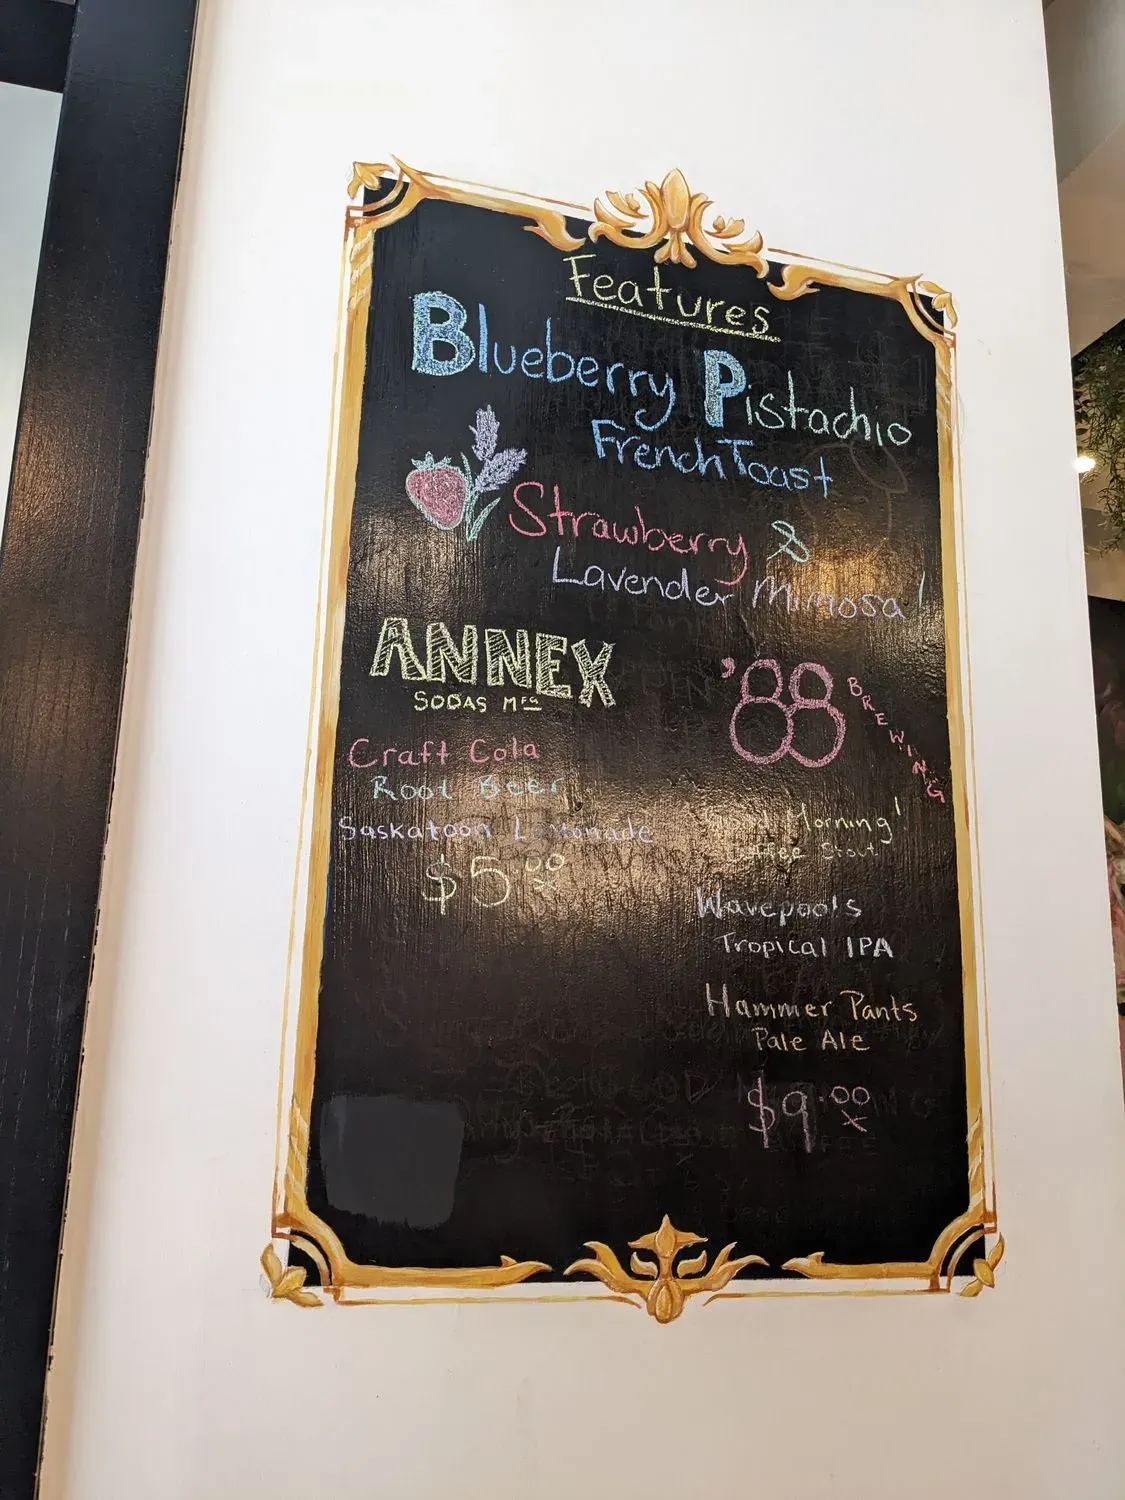 Features
Blueberry Pistachio
French Toast
Strawberry &
Lavender Mimosa!
ANNEX
SODAS MFG
Craft Cola
Root Beer
Saskatoon Lemonade
$5.00
'88
BREWING
Good Morning!
Coffee Stout
Wavepools
Tropical IPA
Hammer Pants
Pale Ale
$9.00